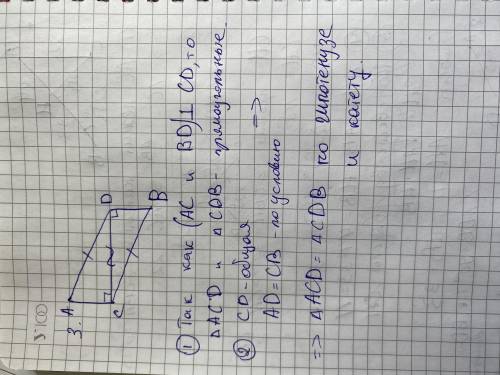 3.
A
D
C
B
① Так как (AC и BD) ⊥ CD, то
△ACD и △CDB - прямоугольные.
② CD - общая
AD = CB - по условию =>
=> △ACD = △CDB по гипотенузе
и катету.